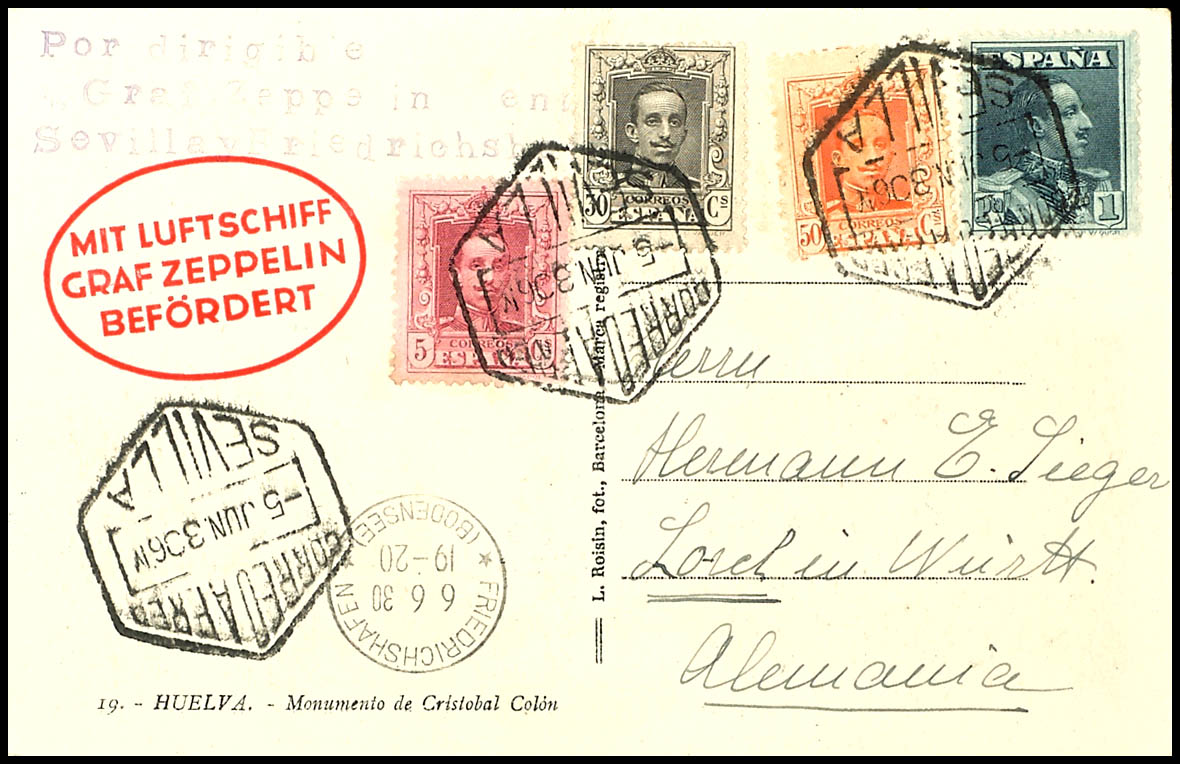 Por dirigible
Graf Zeppelin
Sevilla
MIT LUFTSCHIFF
GRAF ZEPPELIN
BEFÖRDERT
5 CORREOS Cs
ESPAÑA
30 CORREOS Cs
ESPAÑA
50 Cs
ESPAÑA
1
SEVILLA
5 JUN 30 6M
CORREO AEREO
SEVILLA
5 JUN 30 6M
SEVILLA
-5 JUN.30 6M
CORREO AEREO
FRIEDRICHSHAFEN
6 6 30
19-20
★ (BODENSEE) ★
L. Roisin, fot., Barcelona Marca registr
Herrn
Hermann E. Sieger
Lorch in Württ.
Alemania
19. - HUELVA. - Monumento de Cristobal Colón